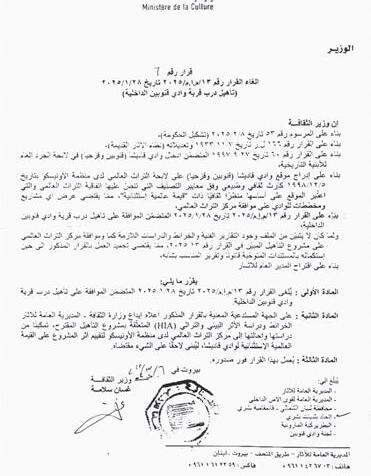 Ministère de la Culture
الوزير
قرار رقم
الغاء القرار رقم ١٣/م.إ.م/٢٠٢٥ تاريخ ٢٠٢٥/١/٢٨
(تأهيل درب قرية وادي قنوبين الداخلية)
إن وزير الثقافة
بناء على المرسوم رقم ٥٣ تاريخ ٢٠٢٥/٢/٨ (تشكيل الحكومة)،
بناء على القرار رقم ١٦٦ ل.ر تاريخ ١٩٣٣/١١/٧ وتعديلاته (نظام الآثار القديمة)،
بناء على القرار رقم ٦٠ تاريخ ١٩٩٧ المتضمن ادخال وادي قاديشا (قنوبين وقزحيا) في لائحة الجرد العام
للأبنية التاريخية،
بناء على إدراج موقع وادي قاديشا (قنوبين وقزحيا) على لائحة التراث العالمي لدى منظمة الأونيسكو بتاريخ
١٩٩٨/١٢/٥ كأرث ثقافي وطبيعي وفق معايير التصنيف التي تنص عليها اتفاقية التراث العالمي والتي
اعتبر الموقع على أساسها منظرا ثقافيا ذات "قيمة عالمية إستثنائية"، مما يقتضي عرض اي مشاريع
ومخططات للوادي على موافقة مركز التراث العالمي،
بناء على القرار رقم ١٣/م.إ.م/٢٠٢٥ تاريخ ٢٠٢٥/١/٢٨ المتضمن الموافقة على تأهيل درب قرية وادي قنوبين
الداخلية،
ولما كان لم يتبين من الملف وجود التقارير الفنية والخرائط والدراسات اللازمة كما وموافقة مركز التراث العالمي
على مشروع التأهيل المبين في القرار رقم ١٣/٢٠٢٥، مما يقتضي تجميد العمل بالقرار المذكور الى حين
إستكماله بالمستندات المتوجبة قانونا وتقرير المناسب بشأنه،
بناء على اقتراح المدير العام للآثار
يقرّر ما يلي:
المادة الأولى: يُلغى القرار رقم ١٣/م.إ.م/٢٠٢٥ تاريخ ٢٠٢٥/١/٢٨ المتضمن الموافقة على تأهيل درب قرية
وادي قنوبين الداخلية.
المادة الثانية: على الجهة المستدعية المعنية بالقرار المذكور اعلاه إيداع وزارة الثقافة - المديرية العامة للآثار
الخرائط ودراسة الأثر البيئي والتراثي (HIA) المتعلقة بمشروع التأهيل المقترح، تمكينا من
دراستها وإحالتها إلى مركز التراث العالمي لدى منظمة الأونيسكو لتقييم أثر المشروع على القيمة
العالمية الإستثنائية لوادي قاديشا، ليُبنى لاحقا على الشيء مقتضاه.
المادة الثالثة: يُعمل بهذا القرار فور صدوره.
بيروت في
وزير الثقافة
غسان سلامة
يُبلغ الى:
- المديرية العامة للآثار
- المديرية العامة لقوى الامن الداخلي
- محافظة لبنان الشمالي - قائمقامية بشري
- اتحاد بلديات بشري
- البطريركية المارونية
- لجنة وادي قنوبين
المديرية العامة للآثار - طريق المتحف - بيروت - لبنان